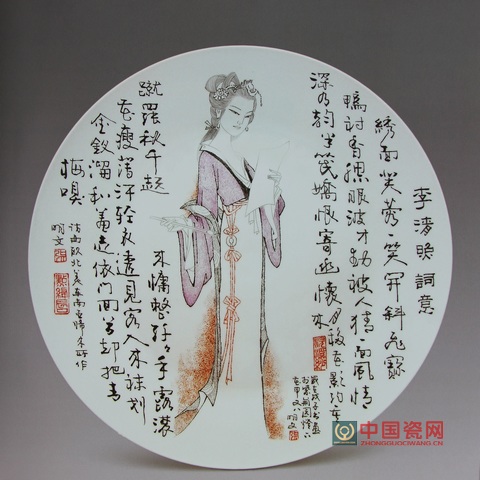 李清照詞意
绣面芙蓉一笑开斜飞寶
鴨衬香腮眼波才动被人猜一面风情
深有韵半笺嬌恨寄幽懷月移花影约重
来
蹴罢秋千起
来慵整纤纤手露浓
花瘦薄汗轻衣透見客入来袜刬
金釵溜和羞走倚门回首却把青
梅嗅
明文
中国瓷网
ZHONGGUOCIWANG.CN